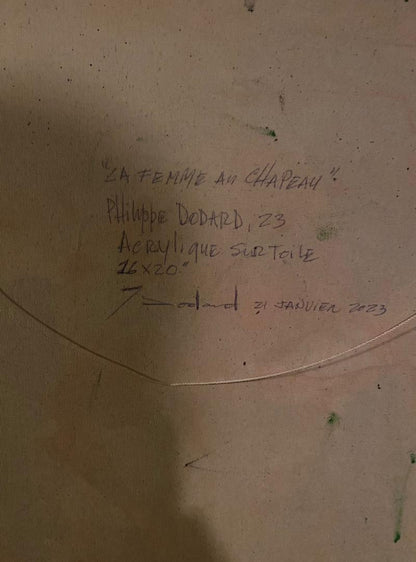 "LA FEMME AU CHAPEAU".
PHilippe DODARD, 23
Acrylique sur Toile
16 x 20"
Dodard 21 JANVIER 2023